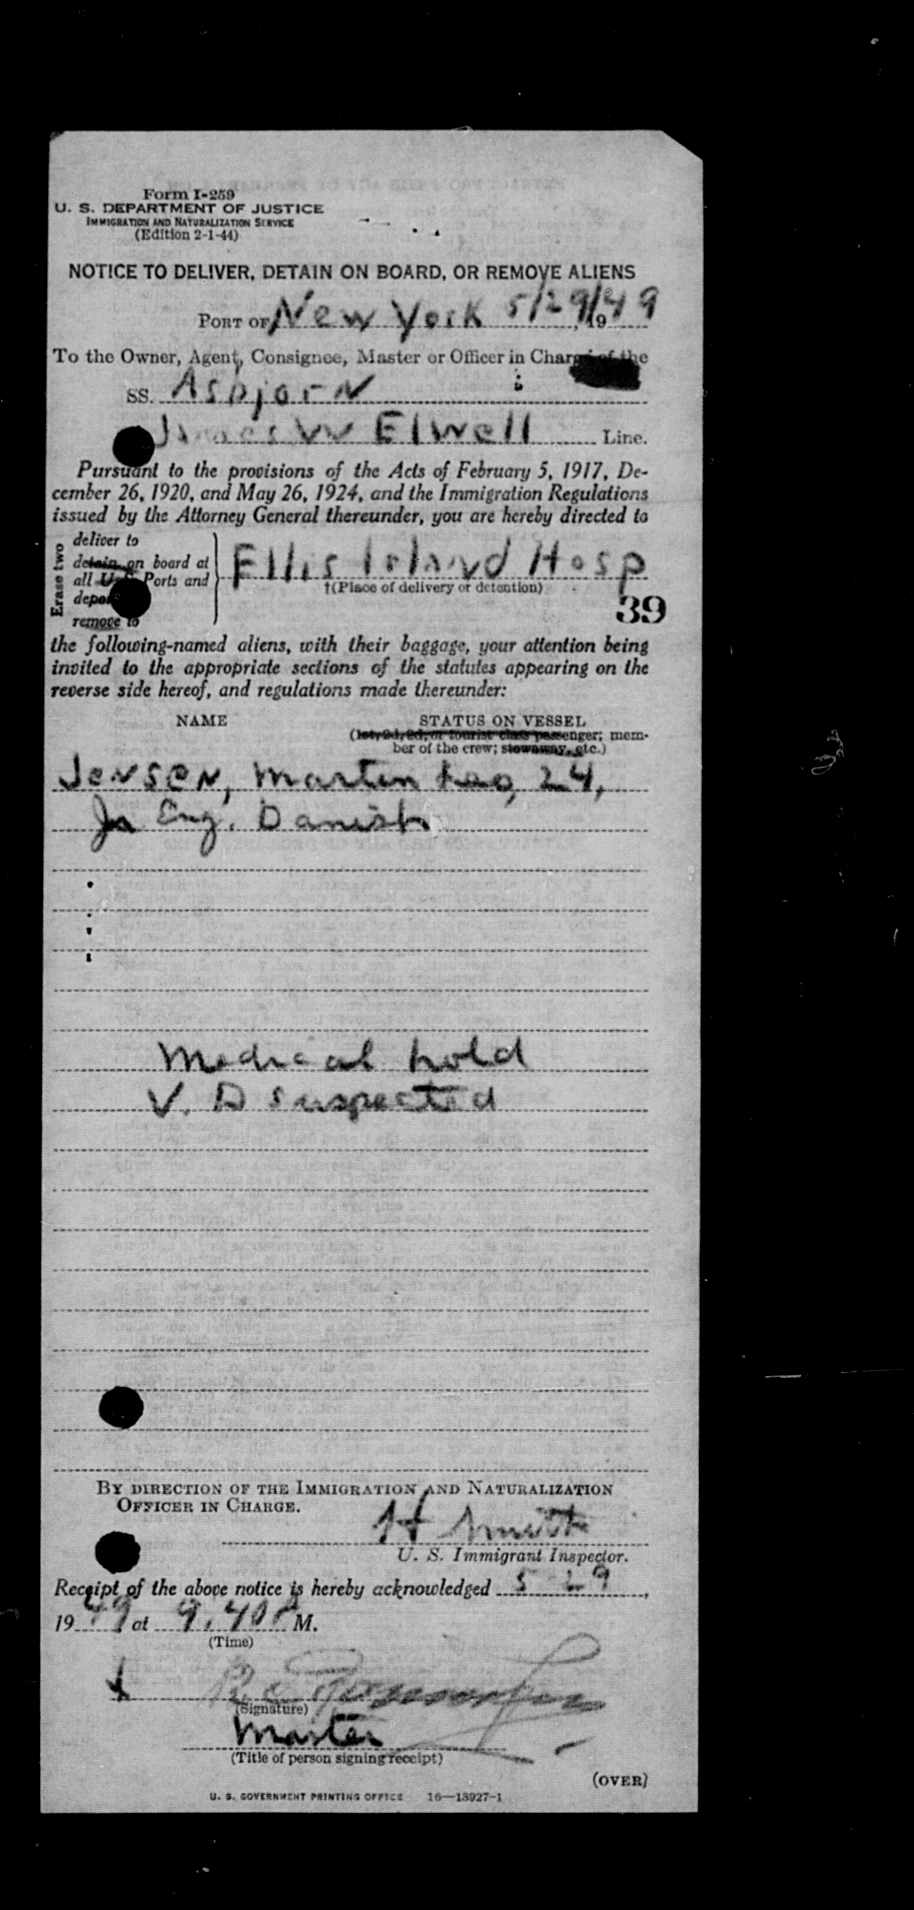 Form I-259
U. S. DEPARTMENT OF JUSTICE
IMMIGRATION AND NATURALIZATION SERVICE
(Edition 2-1-44)
NOTICE TO DELIVER, DETAIN ON BOARD, OR REMOVE ALIENS
PORT OF New York 5/29/, 1949
To the Owner, Agent, Consignee, Master or Officer in Charge of the
SS. Asbjorn
James W Elwell Line.
Pursuant to the provisions of the Acts of February 5, 1917, De-
cember 26, 1920, and May 26, 1924, and the Immigration Regulations
issued by the Attorney General thereunder, you are hereby directed to
Erase two
deliver to
detain on board at
all U. S. Ports and
deport
remove to
Ellis Island Hosp
†(Place of delivery or detention)
39
the following-named aliens, with their baggage, your attention being
invited to the appropriate sections of the statutes appearing on the
reverse side hereof, and regulations made thereunder:
NAME STATUS ON VESSEL
(1st, 2d, 3d, or tourist class passenger; mem-
ber of the crew; stowaway, etc.)
Jensen, Martin Leo, 24,
Jr Eng. Danish
Medical hold
V. D suspected
BY DIRECTION OF THE IMMIGRATION AND NATURALIZATION
OFFICER IN CHARGE.
H Smith
U. S. Immigrant Inspector.
Receipt of the above notice is hereby acknowledged 5-29,
1949 at 9.40 P M.
(Time)
(Signature)
Master
(Title of person signing receipt)
(OVER)
U. S. GOVERNMENT PRINTING OFFICE 16—13927-1